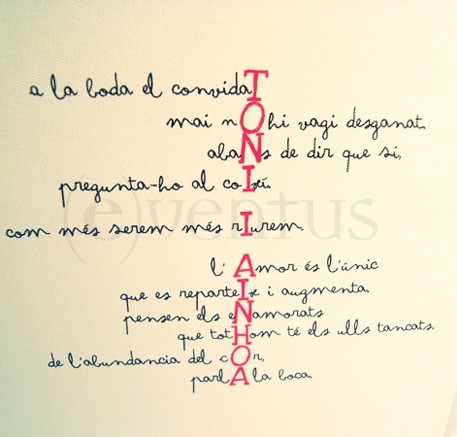 a la boda el convidaT
mai nO hi vagi desganat.
abaNs de dir que si,
pregunta-ho al coIxí.
com més serem més rIurem.
l'Amor és l'únic
que es reparteIx i augmenta.
pensen els eNamorats
que totHom té els ulls tancats.
de l'abundancia del cOr,
parlA la boca.
(e)ventus